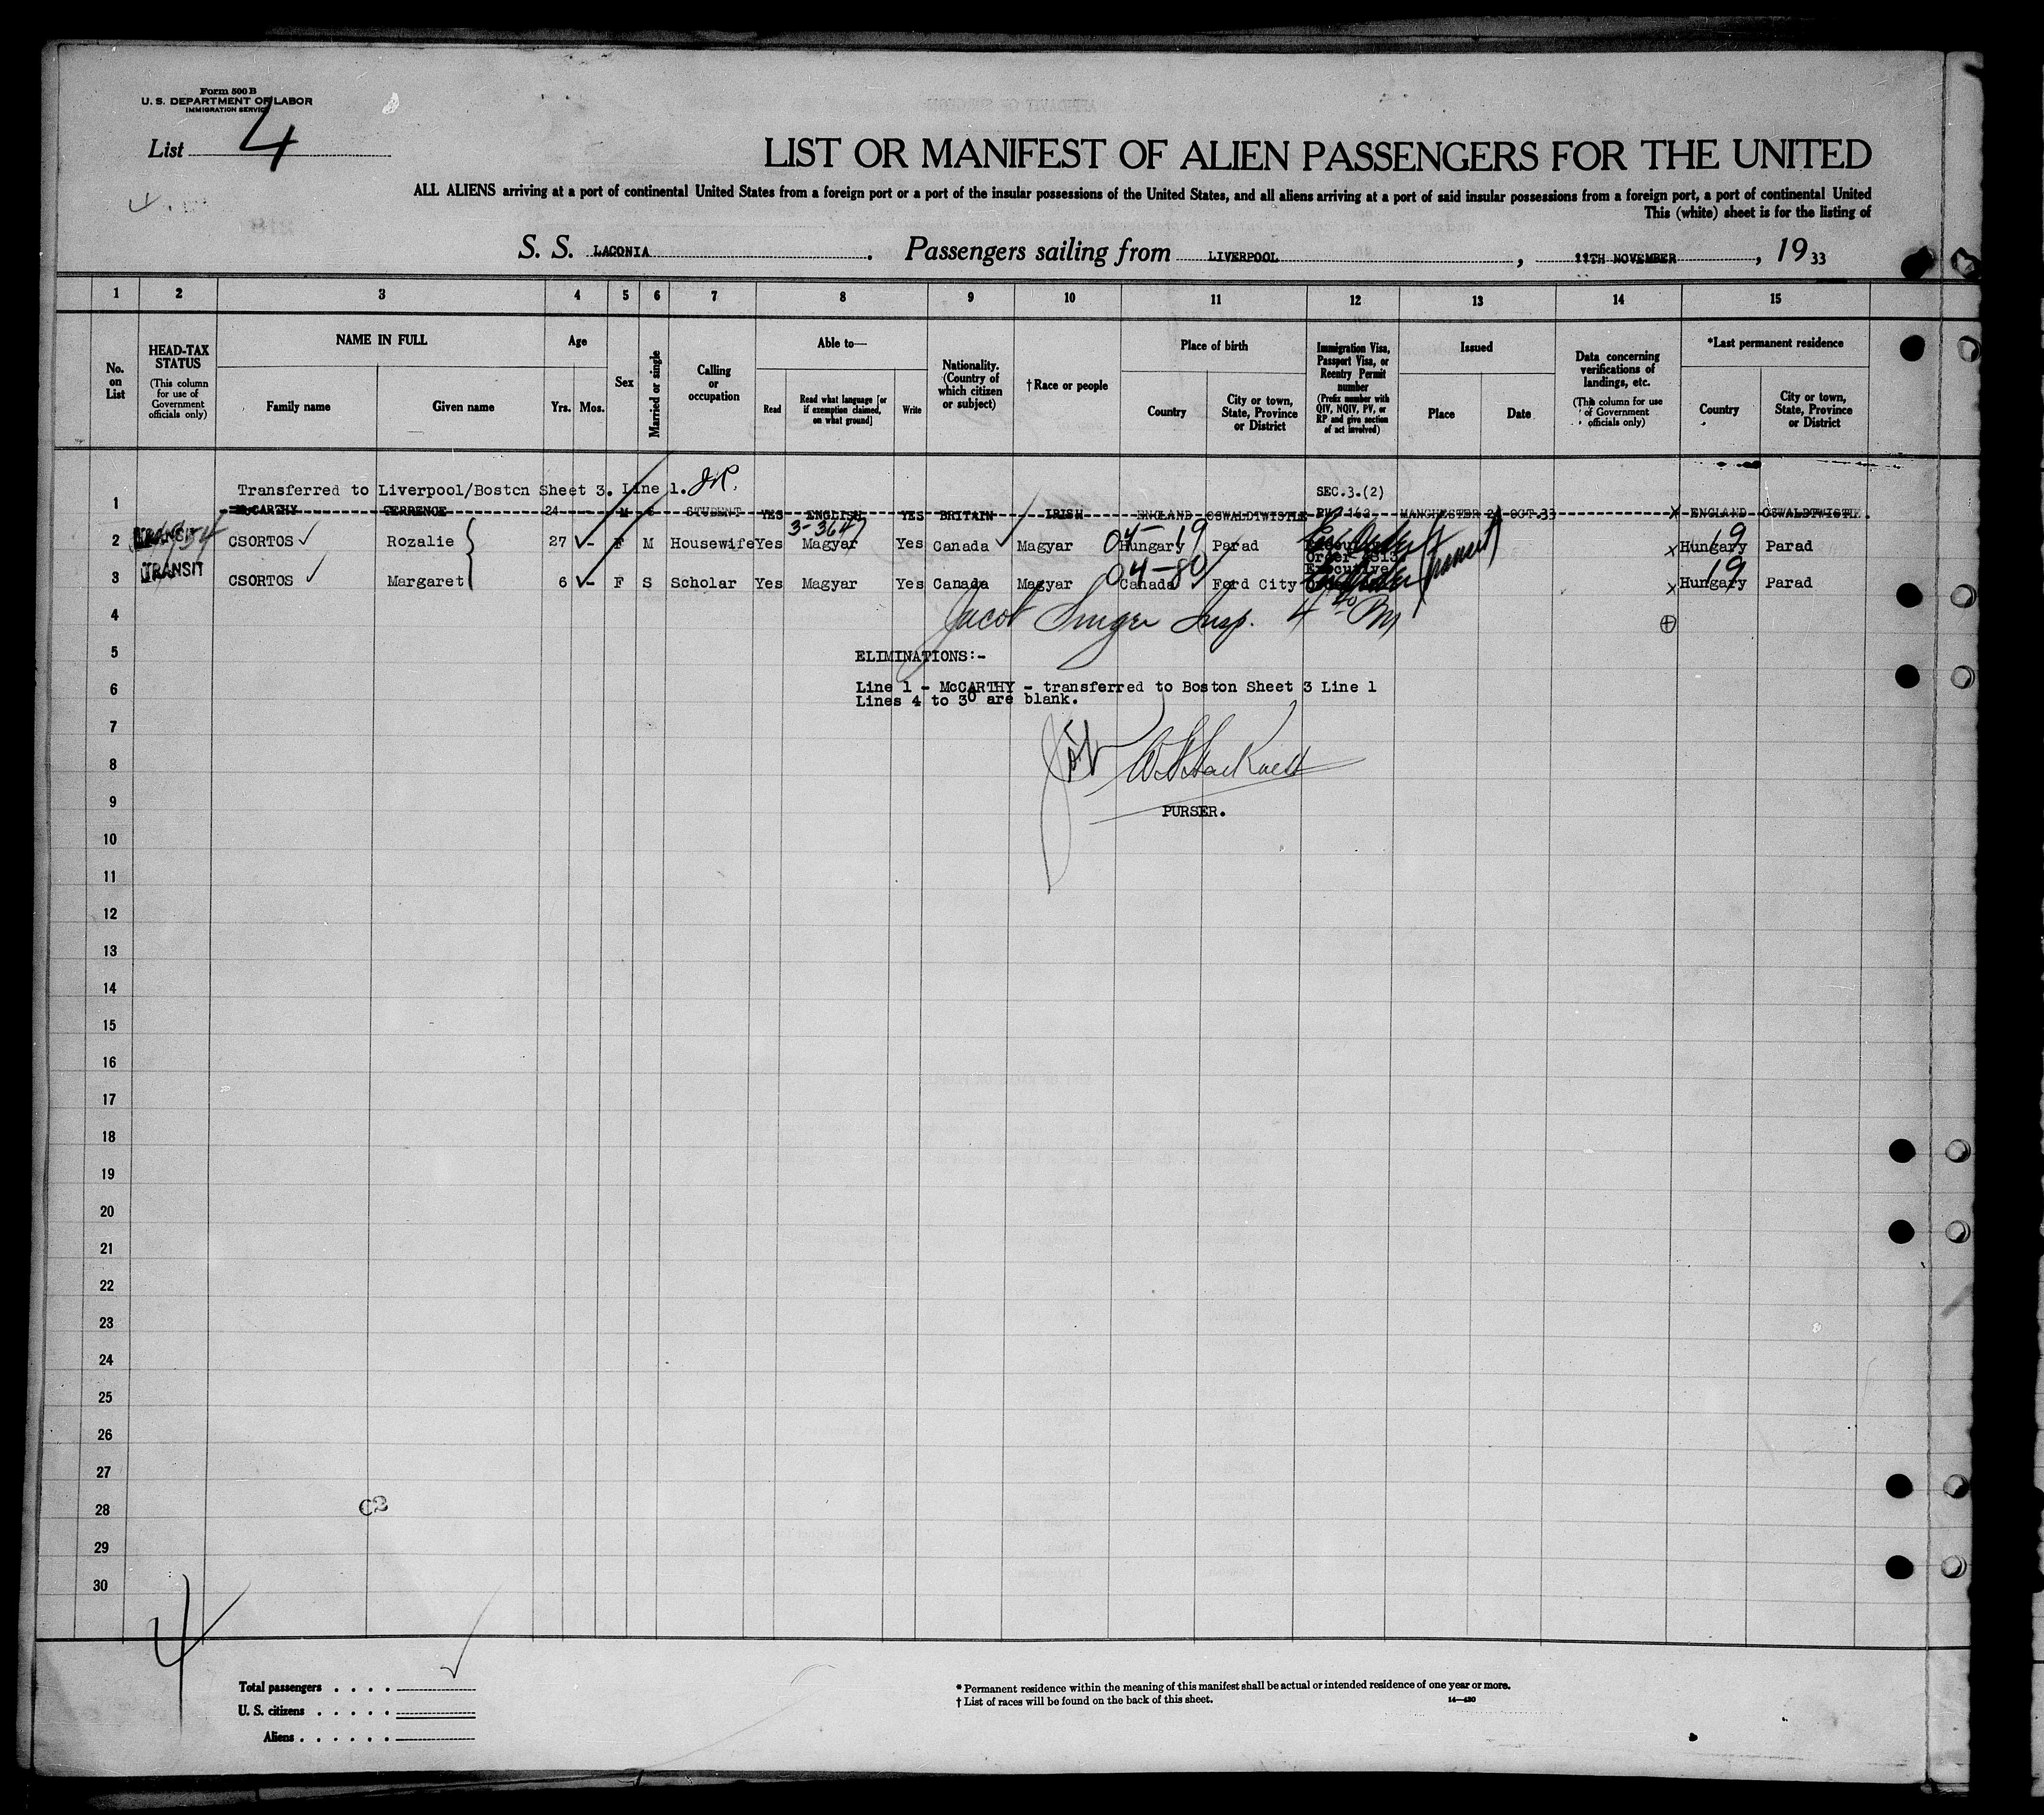 Form 500 B
U. S. DEPARTMENT OF LABOR
IMMIGRATION SERVICE
List 4
LIST OR MANIFEST OF ALIEN PASSENGERS FOR THE UNITED
ALL ALIENS arriving at a port of continental United States from a foreign port or a port of the insular possessions of the United States, and all aliens arriving at a port of said insular possessions from a foreign port, a port of continental United
This (white) sheet is for the listing of
S. S. LACONIA. Passengers sailing from LIVERPOOL, 11TH NOVEMBER, 1933
1 2 3 4 5 6 7 8 9 10 11 12 13 14 15
No. on List
HEAD-TAX STATUS (This column for use of Government officials only)
NAME IN FULL
Family name Given name
Age
Yrs. Mos.
Sex
Married or single
Calling or occupation
Able to—
Read Read what language [or if exemption claimed, on what ground] Write
Nationality. (Country of which citizen or subject)
†Race or people
Place of birth
Country City or town, State, Province or District
Immigration Visa, Passport Visa, or Reentry Permit number (Prefix number with QIV, NQIV, PV, or RP and give section of act involved)
Issued
Place Date
Data concerning verifications of landings, etc. (This column for use of Government officials only)
*Last permanent residence
Country City or town, State, Province or District
Transferred to Liverpool/Boston Sheet 3. Line 1.
SEC.3.(2)
1 McCARTHY TERRENCE 24 - M S STUDENT YES ENGLISH YES BRITAIN IRISH ENGLAND OSWALDTWISTLE PV 162 MANCHESTER 24 OCT 33 x ENGLAND OSWALDTWISTLE.
3-3647 04-19 19
2 TRANSIT CSORTOS Rozalie 27 - F M Housewife Yes Magyar Yes Canada Magyar Hungary Parad Executive Order x Hungary Parad
04-80 19
3 TRANSIT CSORTOS Margaret 6 - F S Scholar Yes Magyar Yes Canada Magyar Canada Ford City Executive Order (Transit) x Hungary Parad
4 Jacob Singer Insp.
5 ELIMINATIONS:-
6 Line 1 - McCARTHY - transferred to Boston Sheet 3 Line 1
Lines 4 to 30 are blank.
7
8
9 PURSER.
10
11
12
13
14
15
16
17
18
19
20
21
22
23
24
25
26
27
28
29
30
4
Total passengers . . . .
U. S. citizens . . . . .
Aliens . . . . . .
* Permanent residence within the meaning of this manifest shall be actual or intended residence of one year or more.
† List of races will be found on the back of this sheet. 14—430